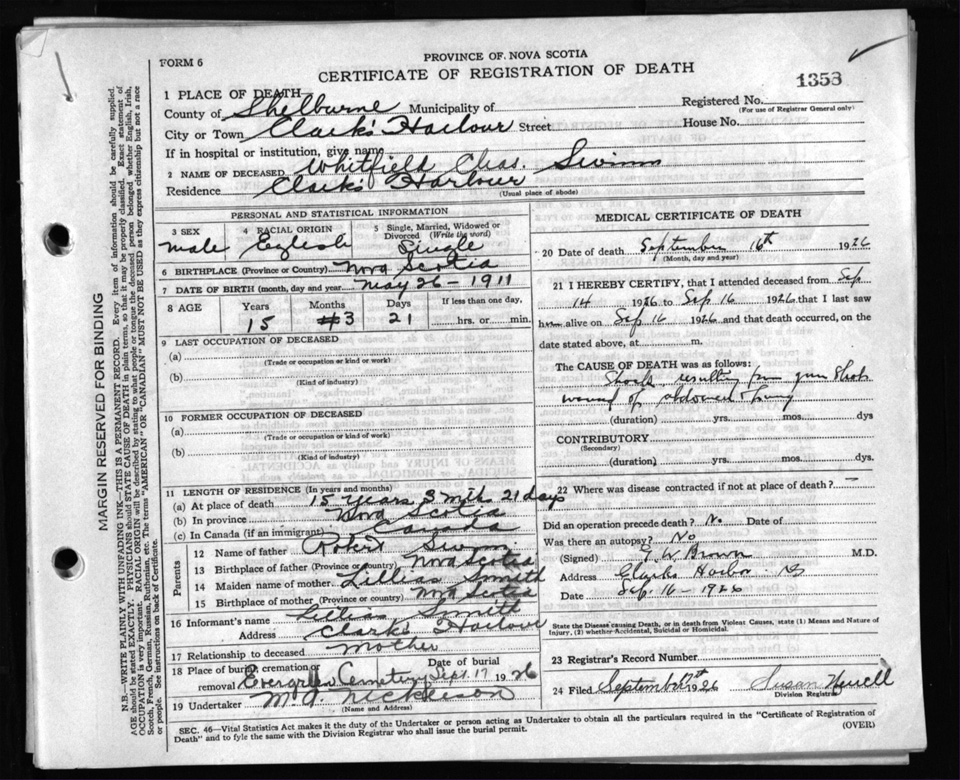 FORM 6
PROVINCE OF NOVA SCOTIA
CERTIFICATE OF REGISTRATION OF DEATH
1353
1 PLACE OF DEATH
County of Shelburne Municipality of
Registered No.
(For use of Registrar General only)
City or Town Clark's Harbour Street
House No.
If in hospital or institution, give name
2 NAME OF DECEASED Whitfield Chas. Swim
Residence Clark's Harbour
(Usual place of abode)
PERSONAL AND STATISTICAL INFORMATION
3 SEX
male
4 RACIAL ORIGIN
Eglish
5 Single, Married, Widowed or Divorced (Write the word)
Single
6 BIRTHPLACE (Province or Country) Nova Scotia
7 DATE OF BIRTH (month, day and year) May 26 - 1911
8 AGE
Years
15
Months
#3
Days
21
If less than one day,
hrs. or min.
9 LAST OCCUPATION OF DECEASED
(a)
(Trade or occupation or kind or work)
(b)
(Kind of industry)
10 FORMER OCCUPATION OF DECEASED
(a)
(Trade or occupation or kind or work)
(b)
(Kind of industry)
11 LENGTH OF RESIDENCE (In years and months)
(a) At place of death 15 years 3 mth 21 days
(b) In province Nova Scotia
(c) In Canada (if an immigrant) Canada
Parents
12 Name of father Robert Swim
13 Birthplace of father (Province or country) Nova Scotia
14 Maiden name of mother Lillias Smith
15 Birthplace of mother (Province or country) Nova Scotia
16 Informant's name Lillias Smith
Address Clark's Harbour
17 Relationship to deceased Mother
18 Place of burial, cremation or removal Evergreen Cemetery
Date of burial Sept. 17 1926
19 Undertaker M. A. Nickerson
(Name and Address)
MEDICAL CERTIFICATE OF DEATH
20 Date of death September 16th 1926
(Month, day and year)
21 I HEREBY CERTIFY, that I attended deceased from Sep
14 1926 to Sep 16 1926 that I last saw
h alive on Sep 16 1926 and that death occurred, on the
date stated above, at m.
The CAUSE OF DEATH was as follows:
Shock, resulting from gun shot
wound of abdomen &
(duration) yrs. mos. dys
CONTRIBUTORY
(Secondary)
(duration) yrs. mos. dys.
22 Where was disease contracted if not at place of death? —
Did an operation precede death? No Date of
Was there an autopsy? No
(Signed) E. W. Brown M.D.
Address Clarks Harbor NS
Date Sep. 16 - 1926
State the Disease causing Death, or in death from Violent Causes, state (1) Means and Nature of Injury, (2) whether Accidental, Suicidal or Homicidal.
23 Registrar's Record Number
24 Filed September 17th 1926 Susan Newell
Division Registrar
SEC. 46—Vital Statistics Act makes it the duty of the Undertaker or person acting as Undertaker to obtain all the particulars required in the "Certificate of Registration of
Death" and to fyle the same with the Division Registrar who shall issue the burial permit.
(OVER)
MARGIN RESERVED FOR BINDING
N.B.—WRITE PLAINLY WITH UNFADING INK—THIS IS A PERMANENT RECORD. Every item of information should be carefully supplied.
AGE should be stated EXACTLY. PHYSICIANS should STATE CAUSE OF DEATH in plain terms, so that it may be properly classified. Exact statement of
OCCUPATION is very important. RACIAL ORIGIN will be described by stating to what people or tongue the deceased person belonged whether English, Irish,
Scotch, French, German, Russian, Ruthenian, etc. The terms "AMERICAN" OR "CANADIAN" MUST NOT BE USED as they express citizenship but not a race
or people. See instructions on back of Certificate.